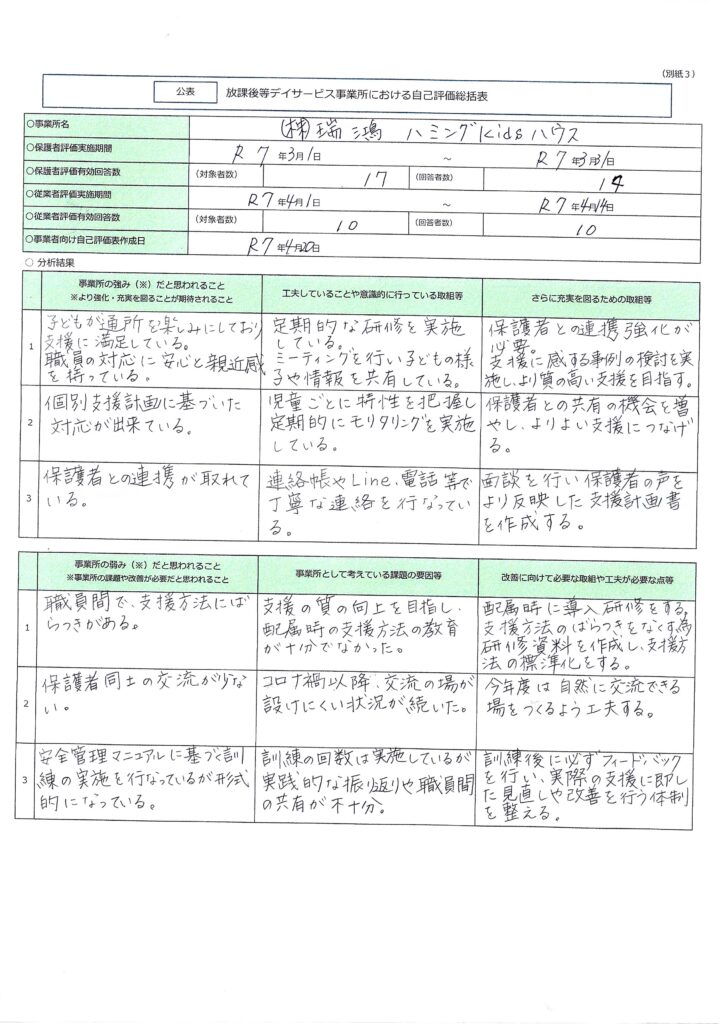 （別紙３）
公表 放課後等デイサービス事業所における自己評価総括表
○事業所名 ㈱瑞鴻 ハミングKidsハウス
○保護者評価実施期間 R7年3月1日 ～ R7年3月31日
○保護者評価有効回答数 （対象者数） 17 （回答者数） 14
○従業者評価実施期間 R7年4月1日 ～ R7年4月14日
○従業者評価有効回答数 （対象者数） 10 （回答者数） 10
○事業者向け自己評価表作成日 R7年4月20日
○ 分析結果
事業所の強み（※）だと思われること
※より強化・充実を図ることが期待されること
工夫していることや意識的に行っている取組等
さらに充実を図るための取組等
1
子どもが通所を楽しみにしており
支援に満足している。
職員の対応に安心と親近感
を持っている。
定期的な研修を実施
している。
ミーティングを行い子どもの様
子や情報を共有している。
保護者との連携強化が
必要。
支援に感する事例の検討を実
施し、より質の高い支援を目指す。
2
個別支援計画に基づいた
対応が出来ている。
児童ごとに特性を把握し
定期的にモリタリングを実施
している。
保護者との共有の機会を増
やし、よりよい支援につなげ
る。
3
保護者との連携が取れて
いる。
連絡帳やLine、電話等で
丁寧な連絡を行なってい
る。
面談を行い保護者の声を
より反映した支援計画書
を作成する。
事業所の弱み（※）だと思われること
※事業所の課題や改善が必要だと思われること
事業所として考えている課題の要因等
改善に向けて必要な取組や工夫が必要な点等
1
職員間で、支援方法にば
らつきがある。
支援の質の向上を目指し、
配属時の支援方法の教育
が十分でなかった。
配属時に導入研修をする。
支援方法のばらつきをなくす為
研修資料を作成し、支援方
法の標準化をする。
2
保護者同士の交流が少な
い。
コロナ禍以降、交流の場が
設けにくい状況が続いた。
今年度は自然に交流できる
場をつくるよう工夫する。
3
安全管理マニュアルに基づく訓
練の実施を行なっているが形式
的になっている。
訓練の回数は実施しているが
実践的な振り返りや職員間
の共有が不十分。
訓練後に必ずフィードバック
を行い、実際の支援に即し
た見直しや改善を行う体制
を整える。